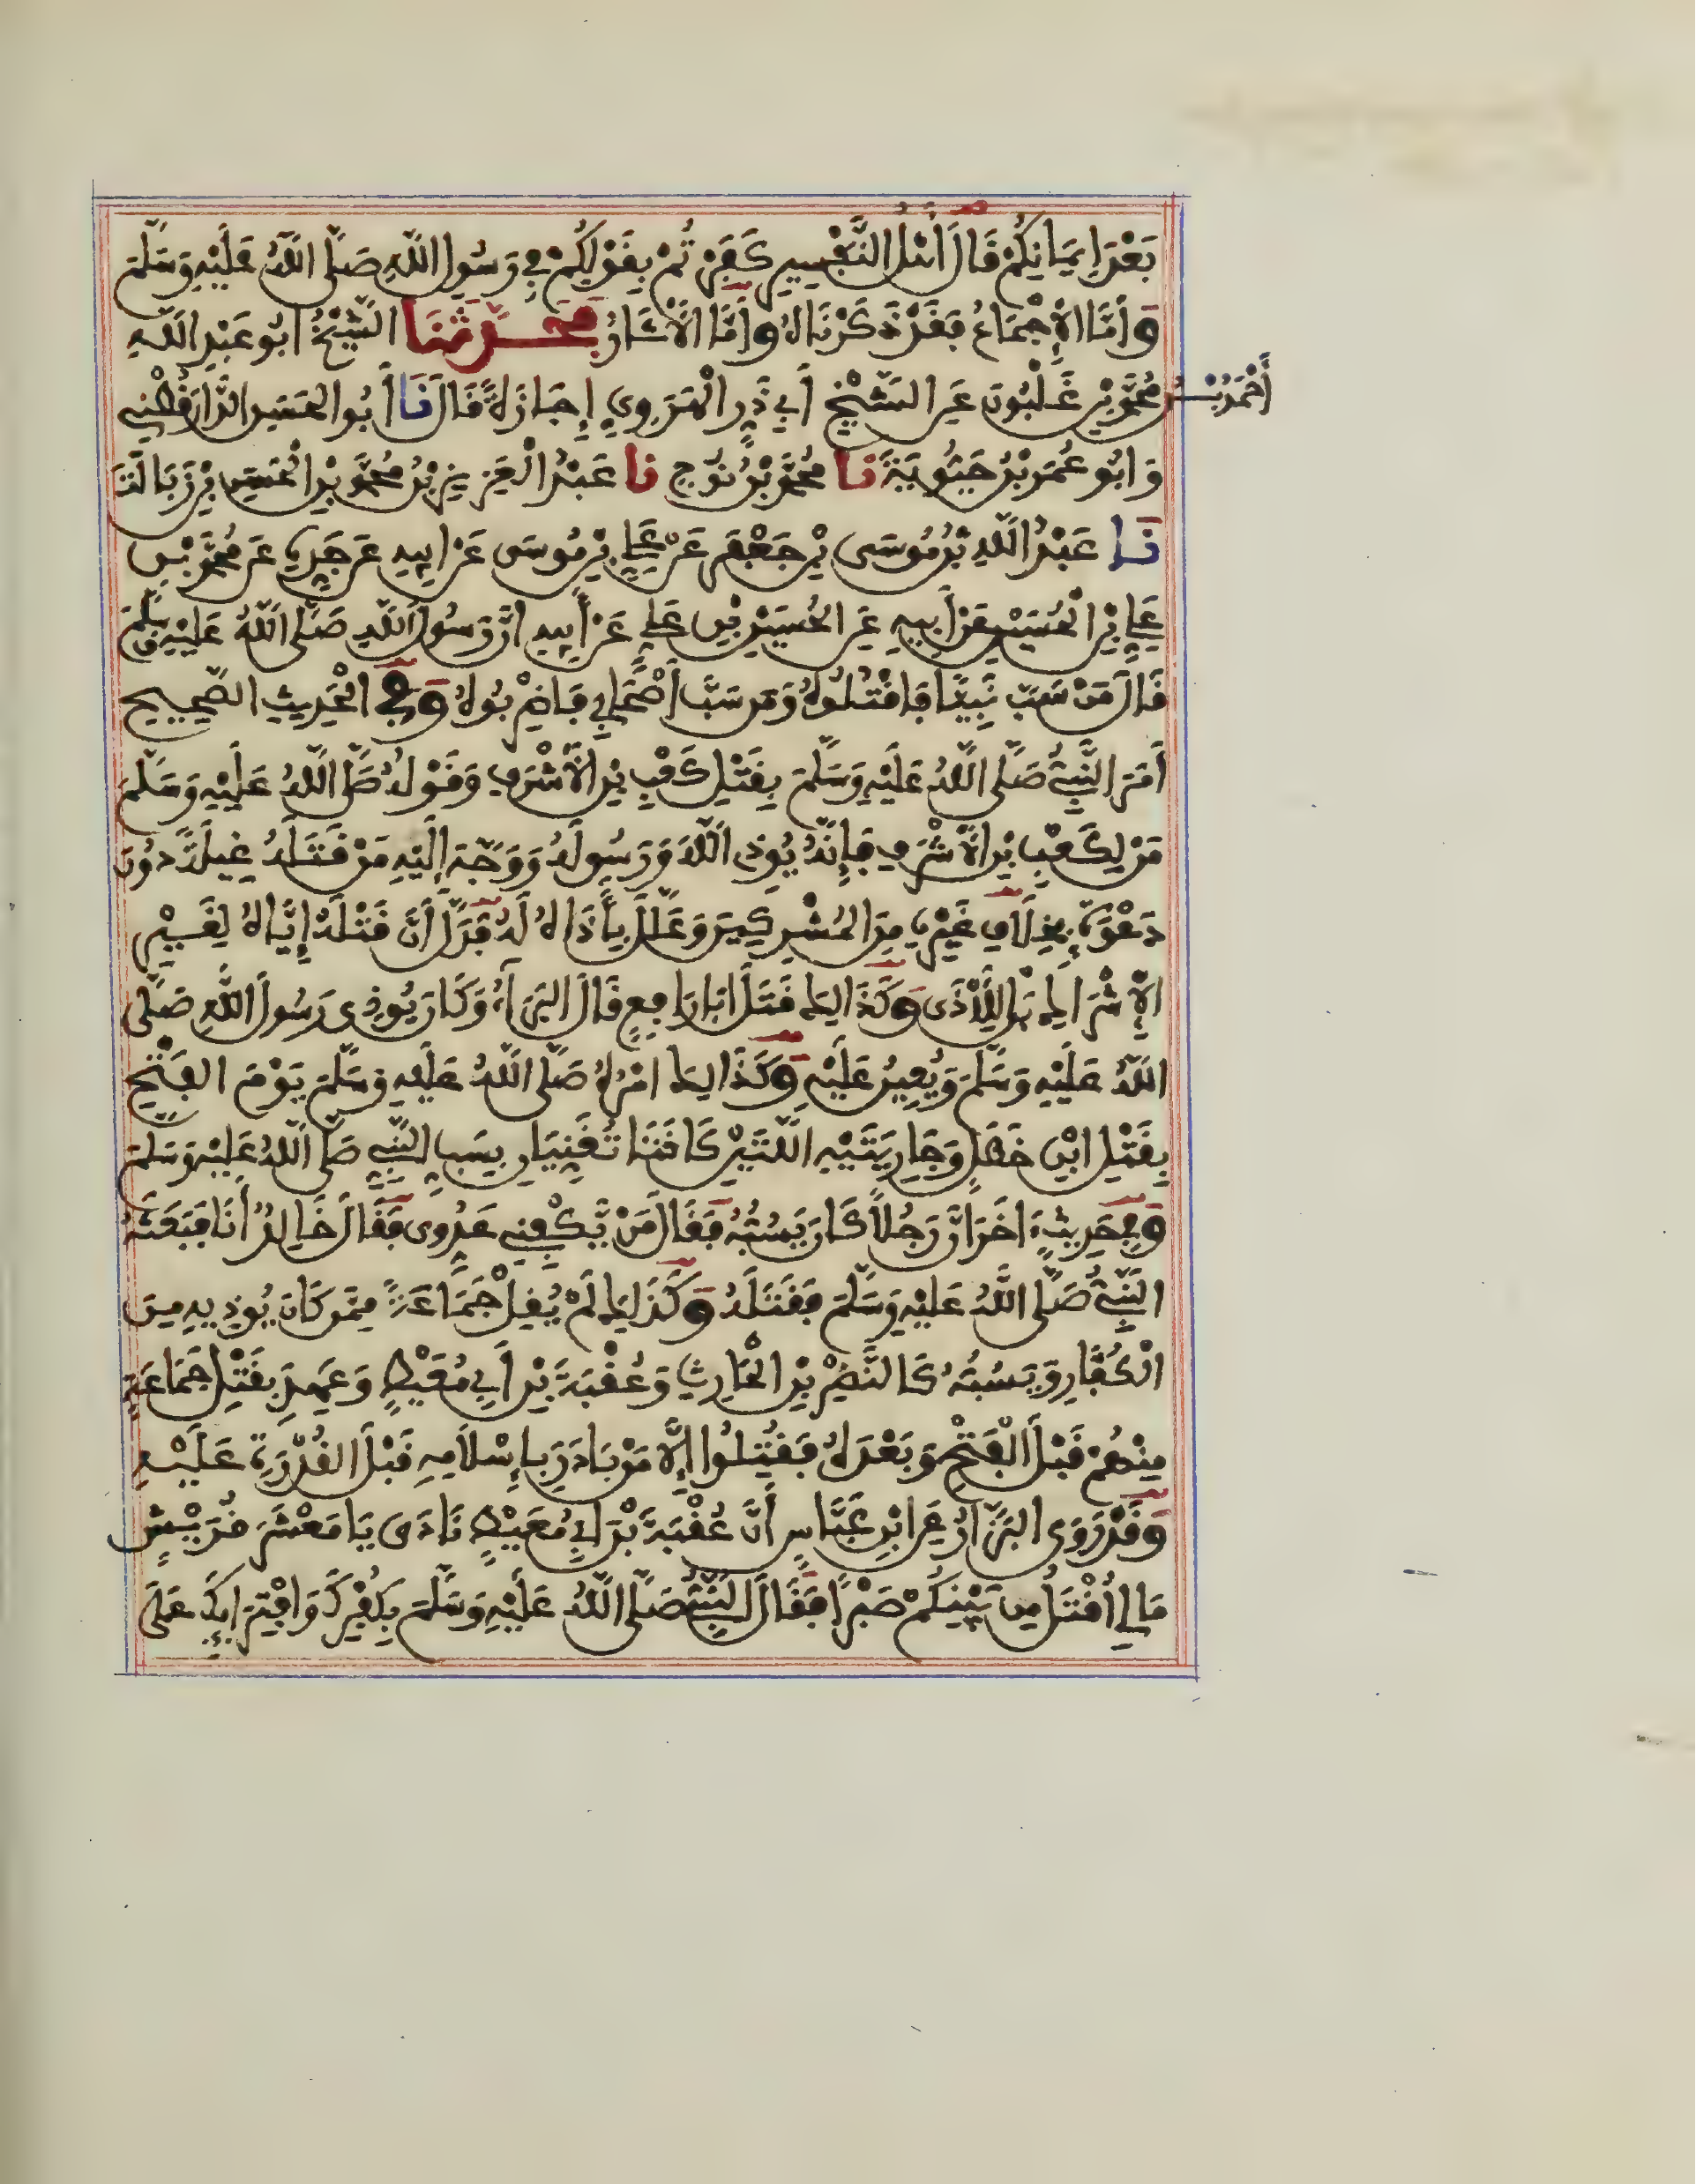 بَعْدَ إِيمَانِكُمْ قَالَ أَهْلُ التَّفْسِيرِ كَفَرْتُمْ بِقَوْلِكُمْ فِي رَسُولِ اللَّهِ صَلَّى اللَّهُ عَلَيْهِ وَسَلَّمَ
وَأَمَّا الْإِجْمَاعُ فَقَدْ ذَكَرْنَاهُ وَأَمَّا الْآثَارُ فَحَدَّثَنَا الشَّيْخُ أَبُو عَبْدِ اللَّهِ
أَحْمَدُ بْنُ مُحَمَّدِ بْنِ غَلْبُونَ عَنِ الشَّيْخِ أَبِي ذَرٍّ الْهَرَوِيِّ إِجَازَةً قَالَ نَا أَبُو الْحَسَنِ الدَّارَقُطْنِي
وَأَبُو عُمَرَ بْنُ حَيَّوَيْهِ نَا مُحَمَّدُ بْنُ نُوحٍ نَا عَبْدُ الْعَزِيزِ بْنُ مُحَمَّدِ بْنِ الْحَسَنِ بْنِ زَبَالَةَ
نَا عَبْدُ اللَّهِ بْنُ مُوسَى بْنِ جَعْفَرٍ عَنْ عَلِيِّ بْنِ مُوسَى عَنْ أَبِيهِ عَنْ جَدِّهِ عَنْ مُحَمَّدِ بْنِ
عَلِيِّ بْنِ الْحُسَيْنِ عَنْ أَبِيهِ عَنِ الْحُسَيْنِ بْنِ عَلِيٍّ عَنْ أَبِيهِ أَنَّ رَسُولَ اللَّهِ صَلَّى اللَّهُ عَلَيْهِ وَسَلَّمَ
قَالَ مَنْ سَبَّ نَبِيًّا فَاقْتُلُوهُ وَمَنْ سَبَّ أَصْحَابِي فَاضْرِبُوهُ وَفِي الْحَدِيثِ الصَّحِيحِ
أَمَرَ النَّبِيُّ صَلَّى اللَّهُ عَلَيْهِ وَسَلَّمَ بِقَتْلِ كَعْبِ بْنِ الْأَشْرَفِ وَقَوْلُهُ صَلَّى اللَّهُ عَلَيْهِ وَسَلَّمَ
مَنْ لِكَعْبِ بْنِ الْأَشْرَفِ فَإِنَّهُ يُوذِي اللَّهَ وَرَسُولَهُ وَوَجَّهَ إِلَيْهِ مَنْ قَتَلَهُ غِيلَةً دُونَ
دَعْوَةٍ بِخِلَافِ غَيْرِهِ مِنَ الْمُشْرِكِينَ وَعَلَّلَ بِأَذَاهُ لَهُ فَدَلَّ أَنَّ قَتْلَهُ إِيَّاهُ لِغَيْرِ
الْإِشْرَاكِ بَلْ لِلْأَذَى وَكَذَالِكَ قَتَلَ أَبَا رَافِعٍ قَالَ الْبَرَاءُ وَكَانَ يُوذِي رَسُولَ اللَّهِ صَلَّى
اللَّهُ عَلَيْهِ وَسَلَّمَ وَيُعِينُ عَلَيْهِ وَكَذَالِكَ امْرُهُ صَلَّى اللَّهُ عَلَيْهِ وَسَلَّمَ يَوْمَ الْفَتْحِ
بِقَتْلِ ابْنِ خَطَلٍ وَجَارِيَتَيْهِ اللَّتَيْنِ كَانَتَا تُغَنِّيَانِ بِسَبِّ النَّبِيِّ صَلَّى اللَّهُ عَلَيْهِ وَسَلَّمَ
وَفِي حَدِيثٍ اخَرَ أَنَّ رَجُلًا كَانَ يَسُبُّهُ فَقَالَ مَنْ يَكْفِينِي عَدُوِّي فَقَالَ خَالِدٌ أَنَا فَبَعَثَهُ
النَّبِيُّ صَلَّى اللَّهُ عَلَيْهِ وَسَلَّمَ فَقَتَلَهُ وَكَذَلِكَ لَمْ يُقِلْ جَمَاعَةً مِمَّنْ كَانَ يُوذِيهِ مِنَ
الْكُفَّارِ وَيَسُبُّهُ كَالنَّضْرِ بْنِ الْحَارِثِ وَعُقْبَةَ بْنِ أَبِي مُعَيْطٍ وَعَهِدَ بِقَتْلِ جَمَاعَةٍ
مِنْهُمْ قَبْلَ الْفَتْحِ وَبَعْدَهُ فَقُتِلُوا إِلَّا مَنْ بَادَرَ بِإِسْلَامِهِ قَبْلَ الْقُدْرَةِ عَلَيْهِ
وَقَدْ رَوَى الْبَزَّارُ عَنِ ابْنِ عَبَّاسٍ أَنَّ عُقْبَةَ بْنَ أَبِي مُعَيْطٍ نَادَى يَا مَعْشَرَ قُرَيْشٍ
مَا لِي أُقْتَلُ مِنْ بَيْنِكُمْ صَبْرًا فَقَالَ النَّبِيُّ صَلَّى اللَّهُ عَلَيْهِ وَسَلَّمَ بِكُفْرِكَ وَافْتِرَائِكَ عَلَى